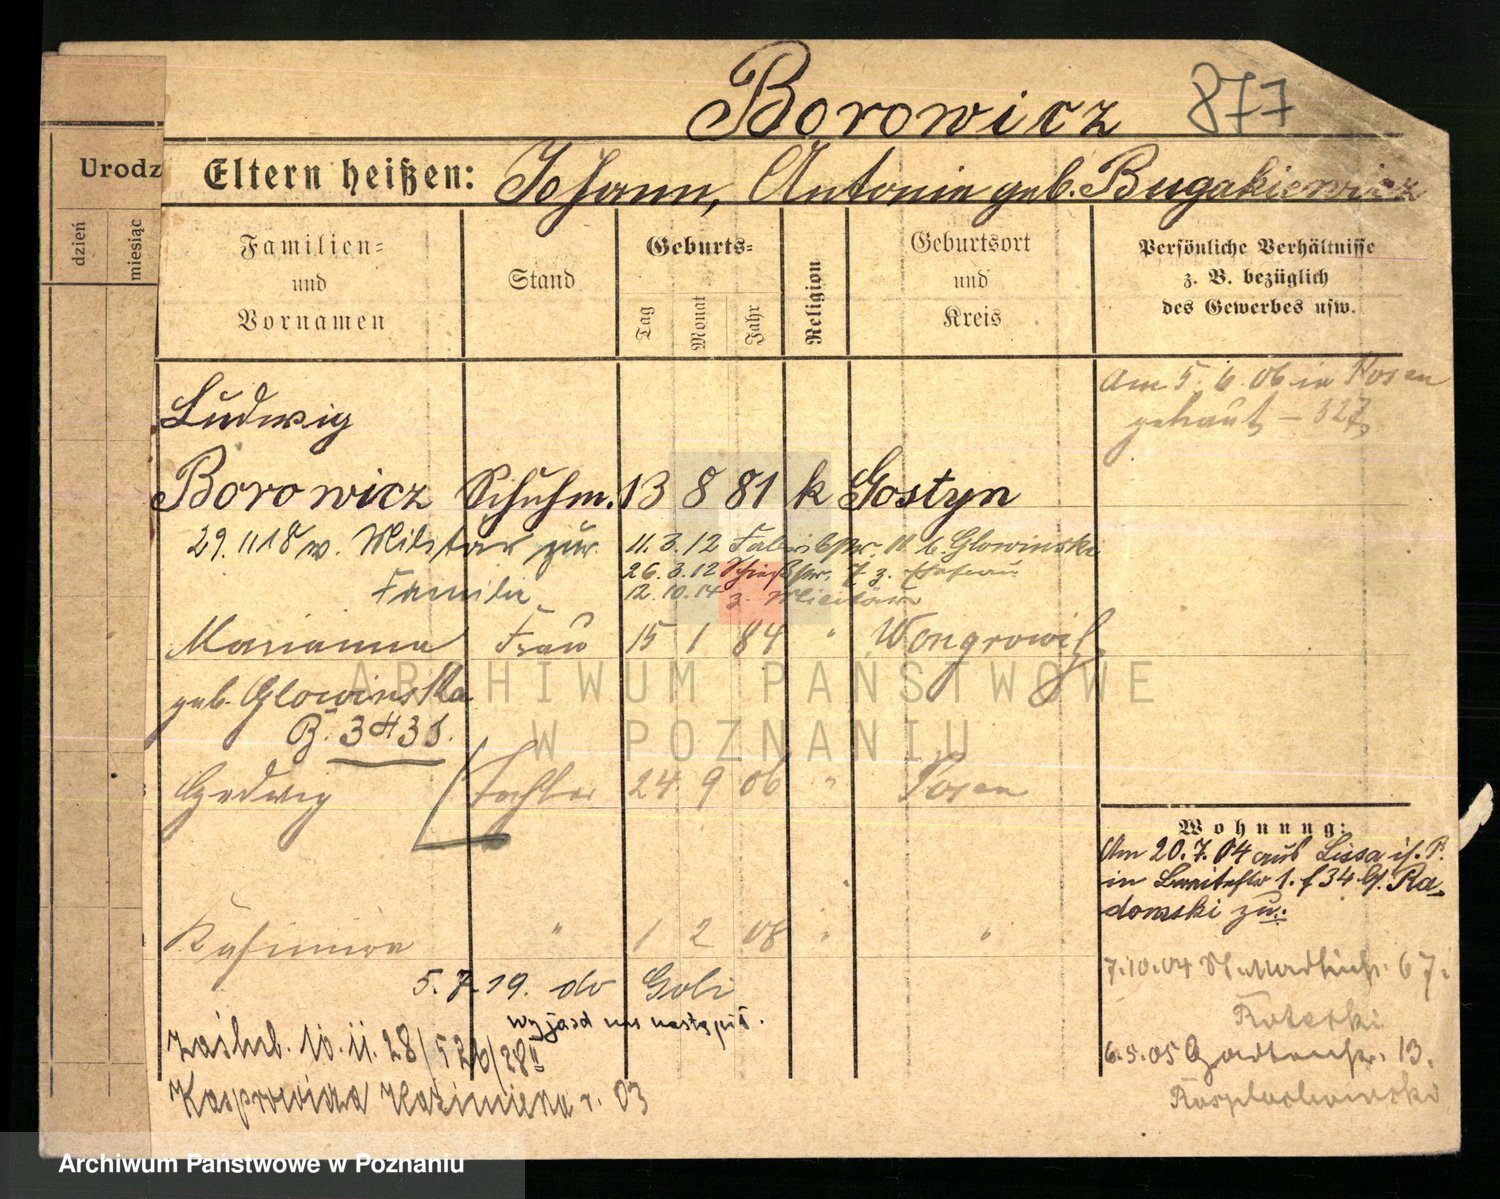 Borowicz 877
Urodz
Eltern heißen: Johann, Antonie geb. Bugakiewicz
dzień
miesiąc
Familien=
und
Vornamen
Stand
Geburts=
Tag
Monat
Jahr
Religion
Geburtsort
und
Kreis
Persönliche Verhältnisse
z. B. bezüglich
des Gewerbes usw.
Am 5. 6. 06 in Posen
getraut – 327
Ludwig
Borowicz Schuhm. 13 8 81 k Gostyn
29.11 18 v. Militär zur
Familie
11. 3. 12 Fabrikstr. b. Glowinski
26. 3. 12
12. 10. 14 z. Militär
Marianna Frau 15 1 84 " Wongrowitz
geb. Glowinska
B. 3431.
Hedwig Tochter 24 9 06 " Posen
Kasimira " 1 2 08 " "
5. 7 19. do Goli
wyjazd nie nastąpił.
zaślub. 10. 11. 28/526/28 II
Kasprowicza Kazimierza r. 03
Wohnung:
Am 20.7.04 aus Lissa i/. P.
in Breitestr 1. f 34 b/. Ra-
domski zu.
7.10.04 67.
Koterski
6.5.05 Gartenstr. 13.
Rosplochowski
ARCHIWUM PAŃSTWOWE
W POZNANIU
Archiwum Państwowe w Poznaniu